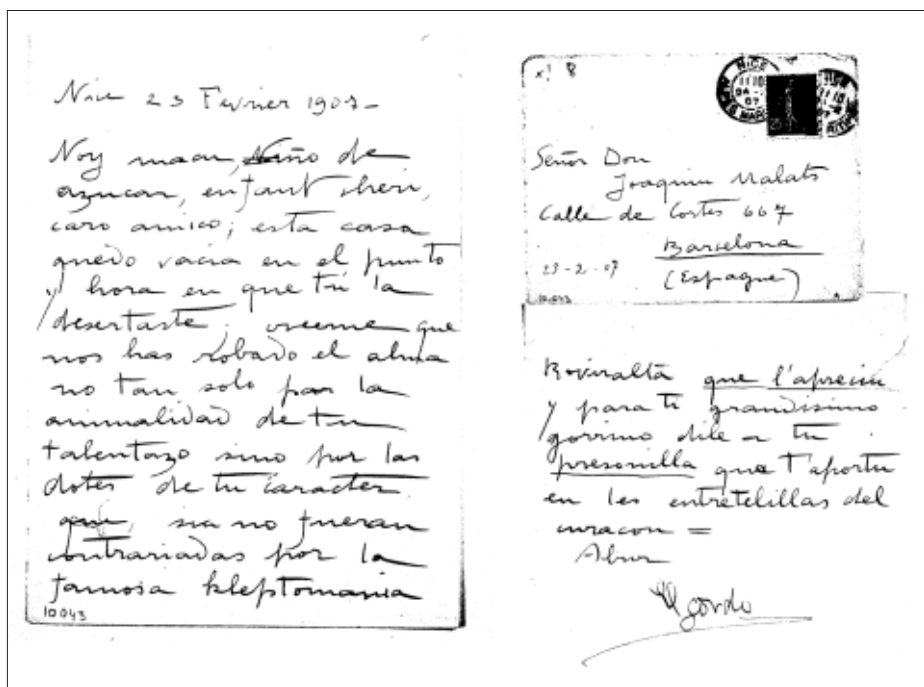 Nice 23 Fevrier 1907-
Noy macu, Niño de
azucar, enfant cheri,
caro amico; esta casa
quedo vacia en el punto
y hora en que tú la
desertaste, creeme que
nos has robado el alma
no tan solo por la
animalidad de tu
talentazo sino por las
dotes de tu caracter
que, sia no fueran
contrariadas por la
famosa kleptomania
10043
x! 8
NICE
11 10
07
Señor Don
Joaquin Malats
Calle de Cortes 667
Barcelona
23-2-07 (Espagne)
10043
Roviralta que l'aprecien
y para ti grandisimo
gorrino dile a tu
presonilla que t'aportu
en les entretelillas del
curacon =
Abur
El gordo